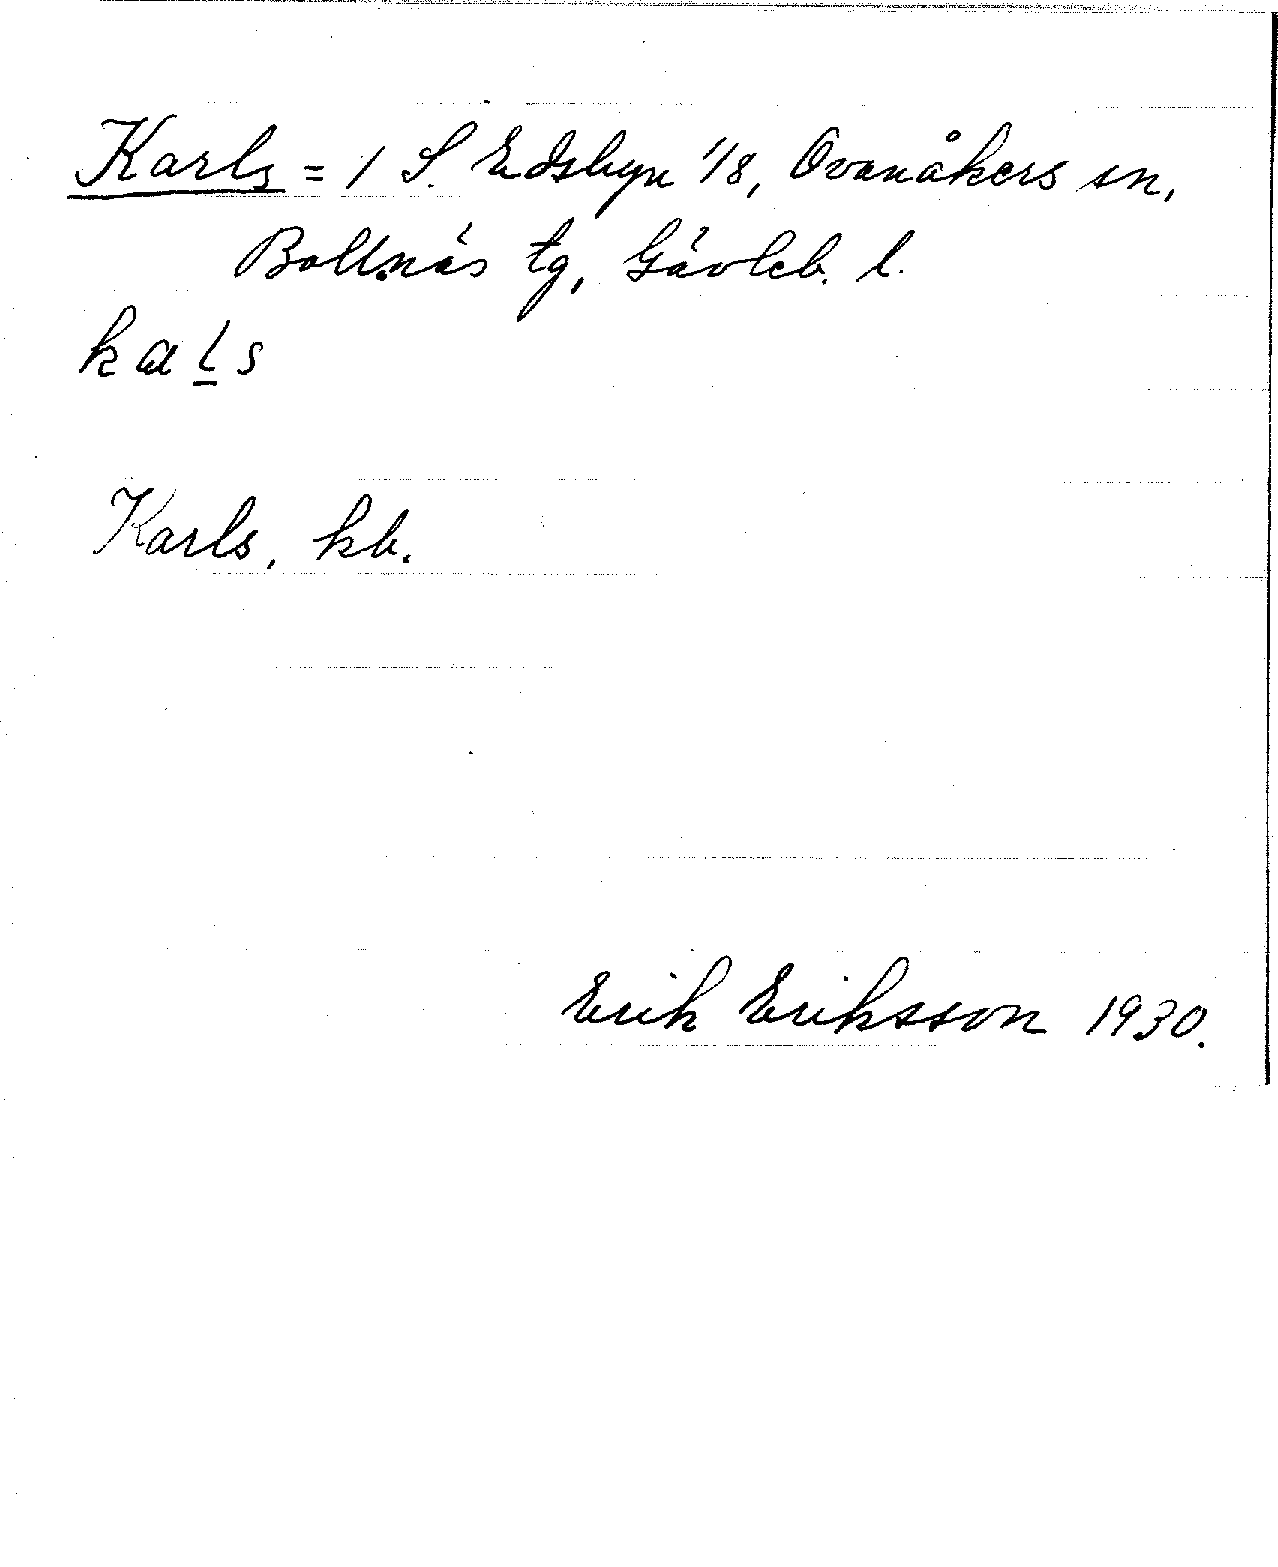 Karls = 1 S. Edsbyn 1/8, Ovanåkers sn,
Bollnäs tg, Gävleb. l.
kals
Karls, kb.
Erik Eriksson 1930.